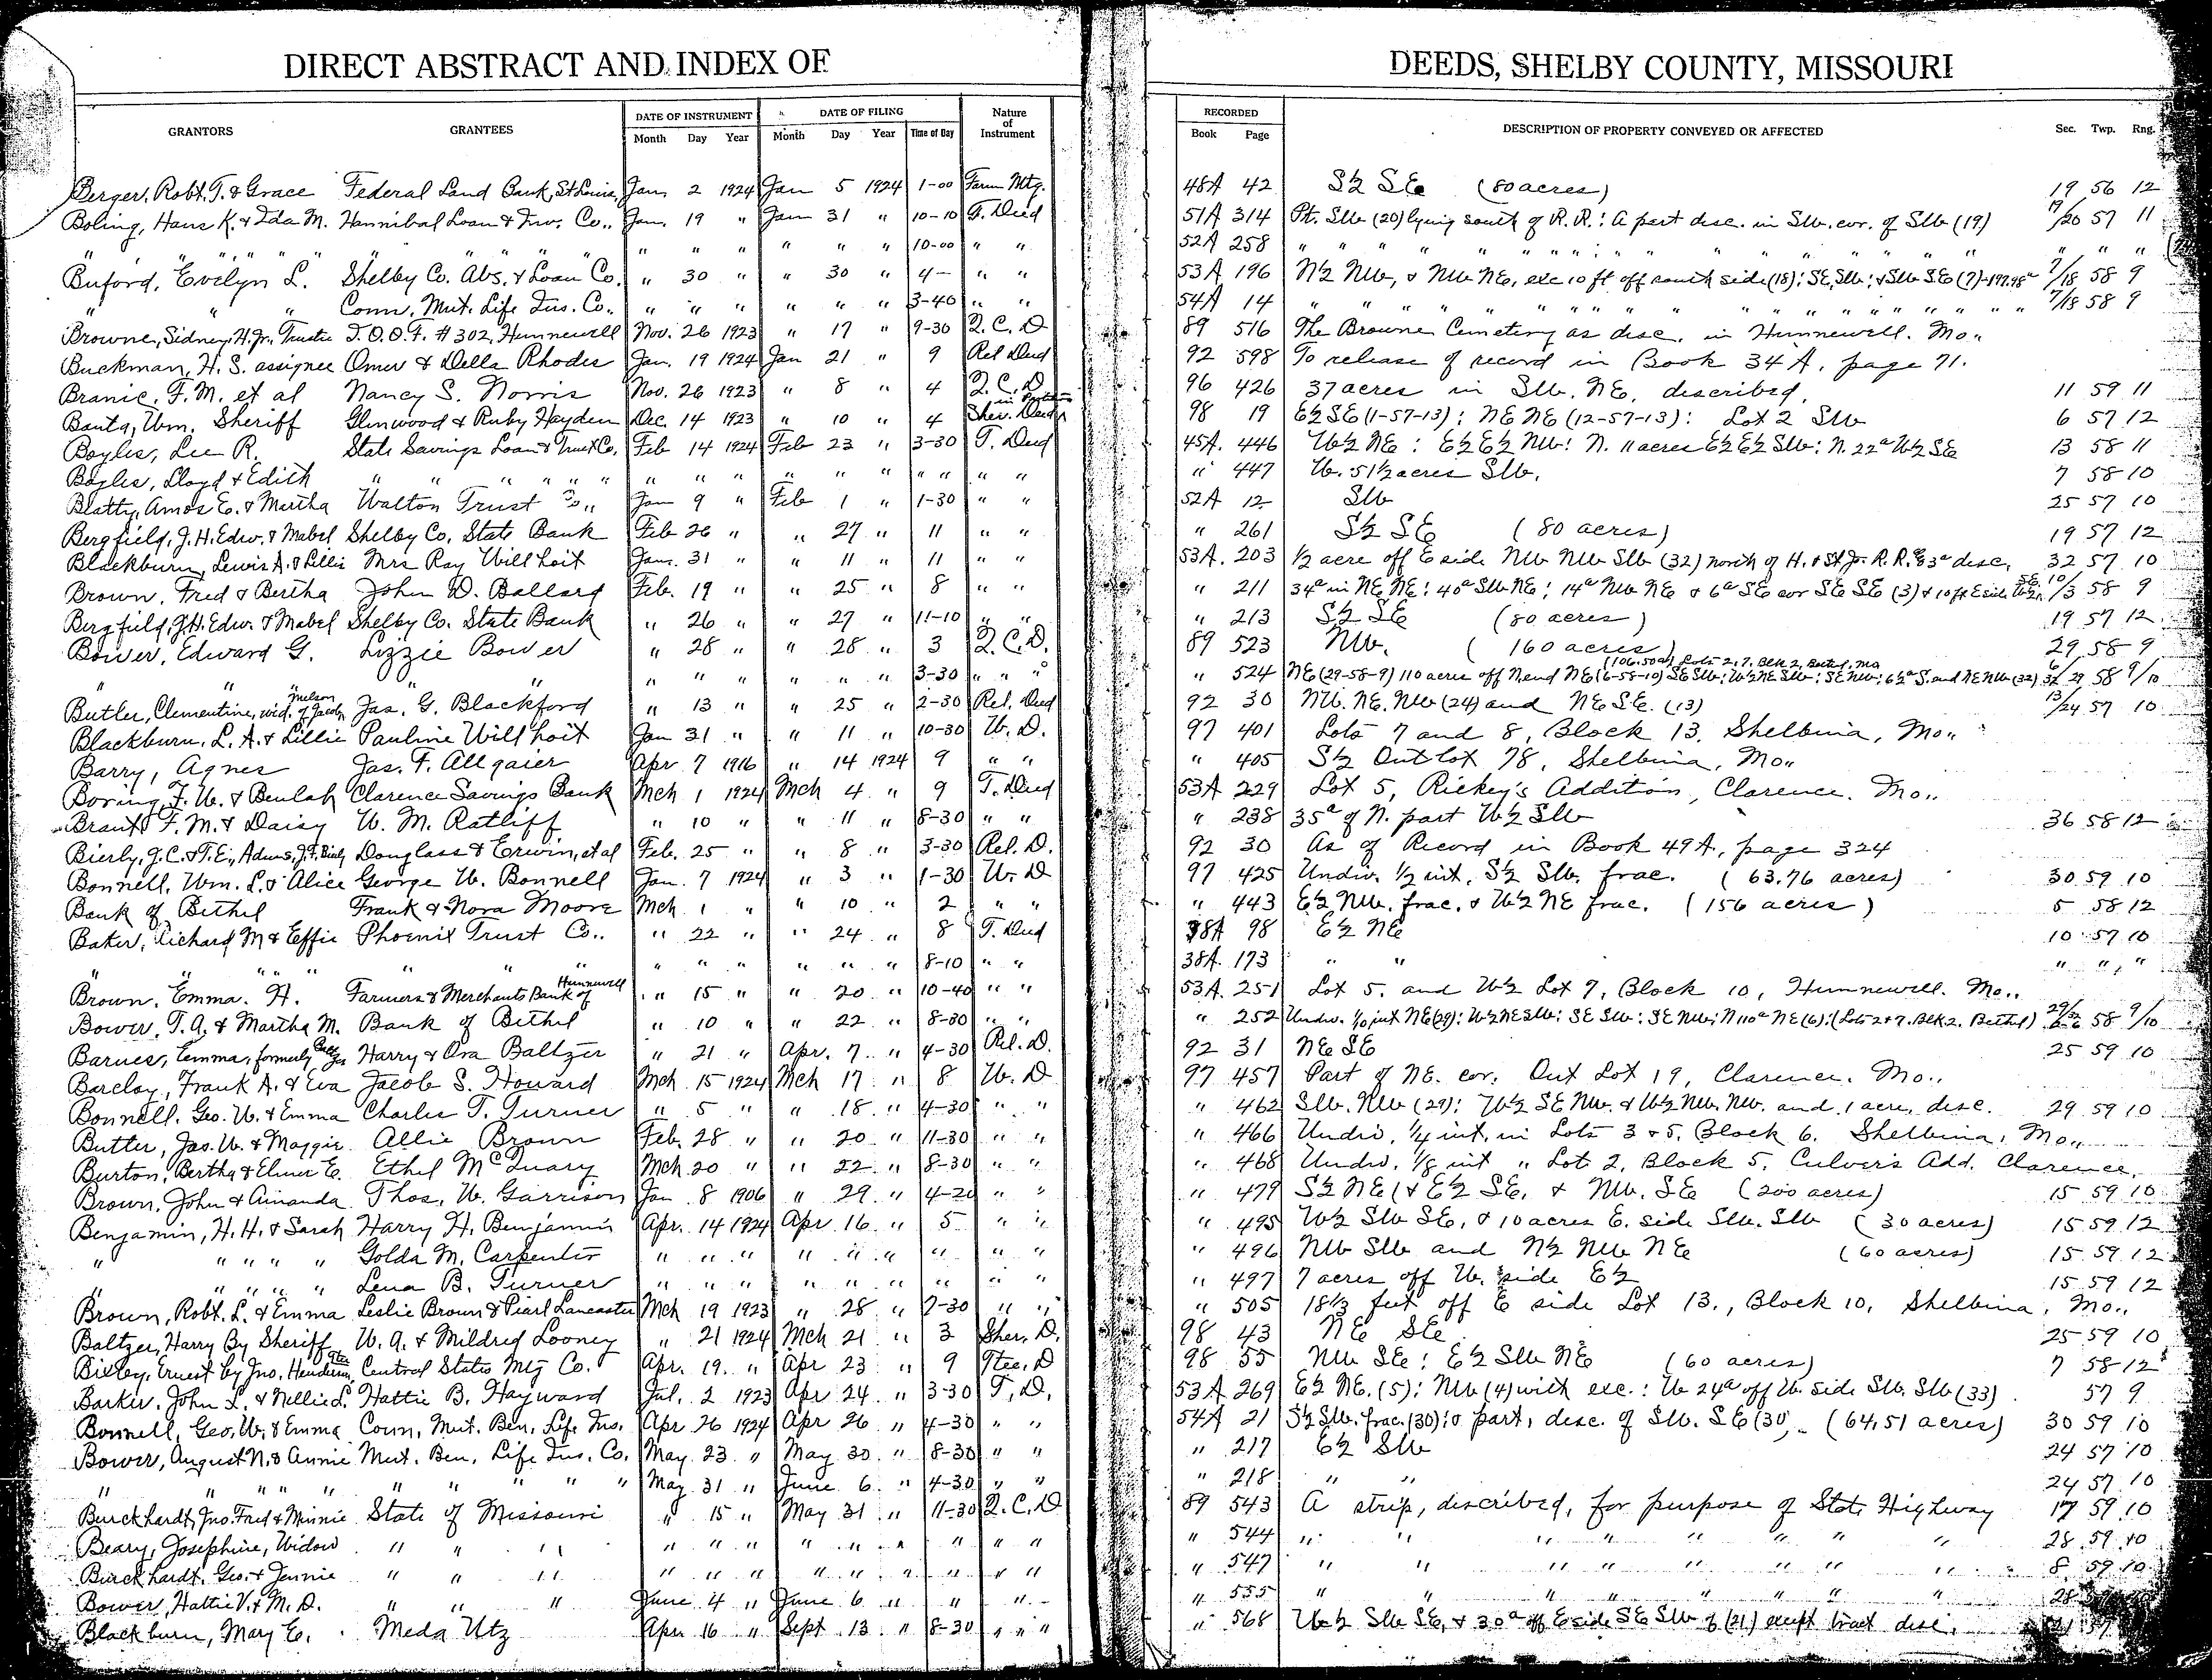 DIRECT ABSTRACT AND INDEX OF DEEDS, SHELBY COUNTY, MISSOURI
GRANTORS GRANTEES DATE OF INSTRUMENT Month Day Year DATE OF FILING Month Day Year Time of Day Nature of Instrument RECORDED Book Page DESCRIPTION OF PROPERTY CONVEYED OR AFFECTED Sec. Twp. Rng.
Berger, Robt. T. & Grace Federal Land Bank, St Louis, Jan. 2 1924 Jan 5 1924 1-00 Farm Mtg. 48A 42 S½ SE (80 acres) 19 56 12
Boling, Hans K. & Ida M. Hannibal Loan & Inv. Co.. Jan. 19 " Jan 31 " 10-10 T. Deed 51A 314 Pt. SW (20) lying south of R.R.: A part desc. in SW. cor. of SW (19) 19/20 57 11
" " " " " " " " " " " " " " 10-00 " " 52A 258 " " " " " " " " " " " " "
Buford, Evelyn L. Shelby Co. Abs. & Loan Co. " 30 " " 30 " 4— " " 53A 196 N½ NW, & NW NE, exc 10 ft off south side (18): SE, SW: & SW SE (7)-197.98ᵃ 7/18 58 9
" " Conn. Mut. Life Ins. Co.. " " " " " " 3-40 " " 54A 14 " " " " " " " " " " 7/18 58 9
Browne, Sidney, H. Jr. Trustee I.O.O.F. #302, Hunnewell Nov. 26 1923 " 17 " 9-30 Q.C.D. 89 516 The Browne Cemetery as desc. in Hunnewell. Mo..
Buckman, H. S. assignee Omer & Della Rhodes Jan. 19 1924 Jan 21 " 9 Rel Deed 92 598 To release of record in Book 34A, page 71.
Branic, F. M. et al Nancy S. Norris Nov. 26 1923 " 8 " 4 Q.C.D. 96 426 37 acres in SW. NE, described, 11 59 11
Banta, Wm. Sheriff Glenwood & Ruby Hayden Dec. 14 1923 " 10 " 4 Sher. Deed in Partition 98 19 E½ SE (1-57-13): NE NE (12-57-13): Lot 2 SW 6 57 12
Bayles, Lee R. State Savings Loan & Trust Co. Feb 14 1924 Feb 23 " 3-30 T. Deed 45A. 446 W½ NE: E½ E½ NW: N. 11 acres E½ E½ SW: N. 22ᵃ W½ SE 13 58 11
Bayles, Lloyd & Edith " " " " " " " " " " " " " " " 447 W. 51½ acres SW. 7 58 10
Blatty, Amos E. & Martha Walton Trust Co.. Jan 9 " Feb 1 " 1-30 " " 52A 12 SW 25 57 10
Bergfield, J.H. Edw. & Mabel Shelby Co. State Bank Feb 26 " " 27 " 11 " " " 261 S½ SE (80 acres) 19 57 12
Blackburn, Lewis A. & Lillie Mrs Ray Willhoit Jan. 31 " " 11 " 11 " " 53A. 203 ½ acre off E side NW NW SW (32) north of H. & St. Jo. R.R. & 3ᵃ desc, 32 57 10
Brown, Fred & Bertha John D. Ballard Feb. 19 " " 25 " 8 " " " 211 34ᵃ in NE NE: 40ᵃ SW NE: 14ᵃ NW NE & 6ᵃ SE cor SE SE (3) & 10 ft E side 10/3 58 9
Bergfield, J.H. Edw. & Mabel Shelby Co. State Bank " 26 " " 27 " 11-10 " " " 213 S½ SE (80 acres) 19 57 12
Bower, Edward G. Lizzie Bower " 28 " " 28 " 3 Q.C.D. 89 523 NW. (160 acres) 29 58 9
" " " " " " " " " 3-30 " " " 524 NE (29-58-9) 110 acres off N end NE (6-58-10) SE SW: W½ NE SW: SE NW: 6½ᵃ S. end NE NW (32) (106.50ᵃ) Lots 2, 7, Blk 2, Bethel, Mo 58 9/10
Butler, Clementine, wid. of Jacob Nelson Jas. G. Blackford " 13 " " 25 " 2-30 Rel. Deed 92 30 NW. NE. NW (24) and NE SE. (13) 13/24 57 10
Blackburn, L. A. & Lillie Pauline Willhoit Jan 31 " " 11 " 10-30 W. D. 97 401 Lots 7 and 8, Block 13. Shelbina, Mo..
Barry, Agnes Jas. F. Allgaier Apr 7 1916 " 14 1924 9 " " " 405 S½ Outlot 78, Shelbina, Mo..
Boring, F. W. & Beulah Clarence Savings Bank Mch 1 1924 Mch 4 " 9 T. Deed 53A 229 Lot 5, Rickey's Addition, Clarence. Mo..
Brant F. M. & Daisy W. M. Ratliff " 10 " " 11 " 8-30 " " " 238 35ᵃ of N. part W½ SW 36 58 12
Bierly, J.C. & T.E., Admrs, J.F. Bierly Douglass & Erwin, et al Feb. 25 " " 8 " 3-30 Rel. D. 92 30 As of Record in Book 49A, page 324
Bonnell, Wm. L. & Alice George W. Bonnell Jan. 7 1924 " 3 " 1-30 W. D 97 425 Undiv. ½ int. S½ SW. frac. (63.76 acres) 30 59 10
Bank of Bethel Frank & Nora Moore Mch 1 " " 10 " 2 " " " 443 E½ NW. frac. & W½ NE frac. (156 acres) 5 58 12
Baker, Richard M & Effie Phoenix Trust Co.. " 22 " " 24 " 8 T. Deed 38A 98 E½ NE 10 57 10
" " " " " " " " " " " " 8-10 " " 38A. 173 " " " " "
Brown, Emma. H. Farmers & Merchants Bank of Hunnewell " 15 " " 20 " 10-40 " " 53A. 251 Lot 5. and W½ Lot 7, Block 10, Hunnewell. Mo..
Bower, T. A. & Martha M. Bank of Bethel " 10 " " 22 " 8-30 " " " 252 Undiv. 1/10 int NE (29): W½ NE SW: SE SW: SE NW: N 110ᵃ NE (6): (Lots 2 & 7. Blk 2. Bethel) 58 9/10
Barnes, Emma, formerly Harry & Ora Baltzer " 21 " Apr. 7 " 4-30 Rel. D. 92 31 NE SE 25 59 10
Barclay, Frank A. & Eva Jacob S. Howard Mch 15 1924 Mch 17 " 8 W. D 97 457 Part of NE. cor. Out Lot 19, Clarence. Mo..
Bonnell. Geo. W. & Emma Charles T. Turner " 5 " " 18 " 4-30 " " " 462 SW. NW (29): W½ SE NW. & W½ NW. NW. and 1 acre, desc. 29 59 10
Butler, Jas. W. & Maggie Allie Brown Feb. 28 " " 20 " 11-30 " " " 466 Undiv. ¼ int. in Lots 3 & 5, Block 6. Shelbina, Mo..
Burton, Bertha & Elmer E. Ethel McQuary Mch 20 " " 22 " 8-30 " " " 468 Undiv. 1/8 int " Lot 2, Block 5, Culver's Add. Clarence.
Brown, John & Amanda Thos. W. Garrison Jan 8 1906 " 29 " 4-20 " " " 479 S½ NE (& E½ SE. & NW. SE (200 acres) 15 59 10
Benjamin, H. H. & Sarah Harry H. Benjamin Apr. 14 1924 Apr 16 " 5 " " " 495 W½ SW SE, & 10 acres E. side SW. SW (30 acres) 15 59 12
" " " " " Golda M. Carpenter " " " " " " " " " " 496 NW SW and N½ NW NE (60 acres) 15 59 12
" " " " " Lena B. Turner " " " " " " " " " " 497 7 acres off W. side E½ 15 59 12
Brown, Robt. L. & Emma Leslie Brown & Pearl Lancaster Mch 19 1923 " 28 " 2-30 " " " 505 18⅓ feet off E side Lot 13., Block 10, Shelbina, Mo..
Baltzer, Harry By Sheriff W. A. & Mildred Looney " 21 1924 Mch 21 " 3 Sher. D. 98 43 NE SE 25 59 10
Bixley, Ernest by Jno. Henderson, Tte Central States Mtg Co. Apr. 19 " Apr 23 " 9 Ttee. D 98 55 NW SE: E½ SW NE (60 acres) 7 58 12
Barker, John L. & Nellie L. Hattie B. Hayward Jul. 2 1923 Apr 24 " 3-30 T. D. 53A 269 E½ NE. (5): NW (4) with exc.: W 24ᵃ off W. side SW. SW (33). 57 9
Bonnell, Geo. W. & Emma Conn. Mut. Ben. Life Ins. Apr 26 1924 Apr 26 " 4-30 " " 54A 21 S½ SW. frac. (30): & part, desc. of SW. SE (30) (64.51 acres) 30 59 10
Bower, August N. & Annie Mut. Ben. Life Ins. Co. May 23 " May 30 " 8-30 " " " 217 E½ SW 24 57 10
" " " " " " " " May 31 " June 6 " 4-30 " " " 218 " " 24 57 10
Burckhardt, Jno. Fred & Minnie State of Missouri " 15 " May 31 " 11-30 Q.C.D 89 543 A strip, described, for purpose of State Highway 17 59 10
Beary, Josephine, Widow " " " " " " " " " " " " " 544 " " " " " " " " 28 59 10
Burckhardt, Geo. & Jennie " " " " " " " " " " " " " 547 " " " " " " " " 8 59 10
Bower, Hattie V. & M. D. " " " June 4 " June 6 " " " - " 555 " " " " " " " 28
Blackburn, Mary E. Meda Utz Apr 16 " Sept 13 " 8-30 " " " " 568 W½ SW SE, & 30ᵃ off E side SE SW of (21) except tract desc. 21 57